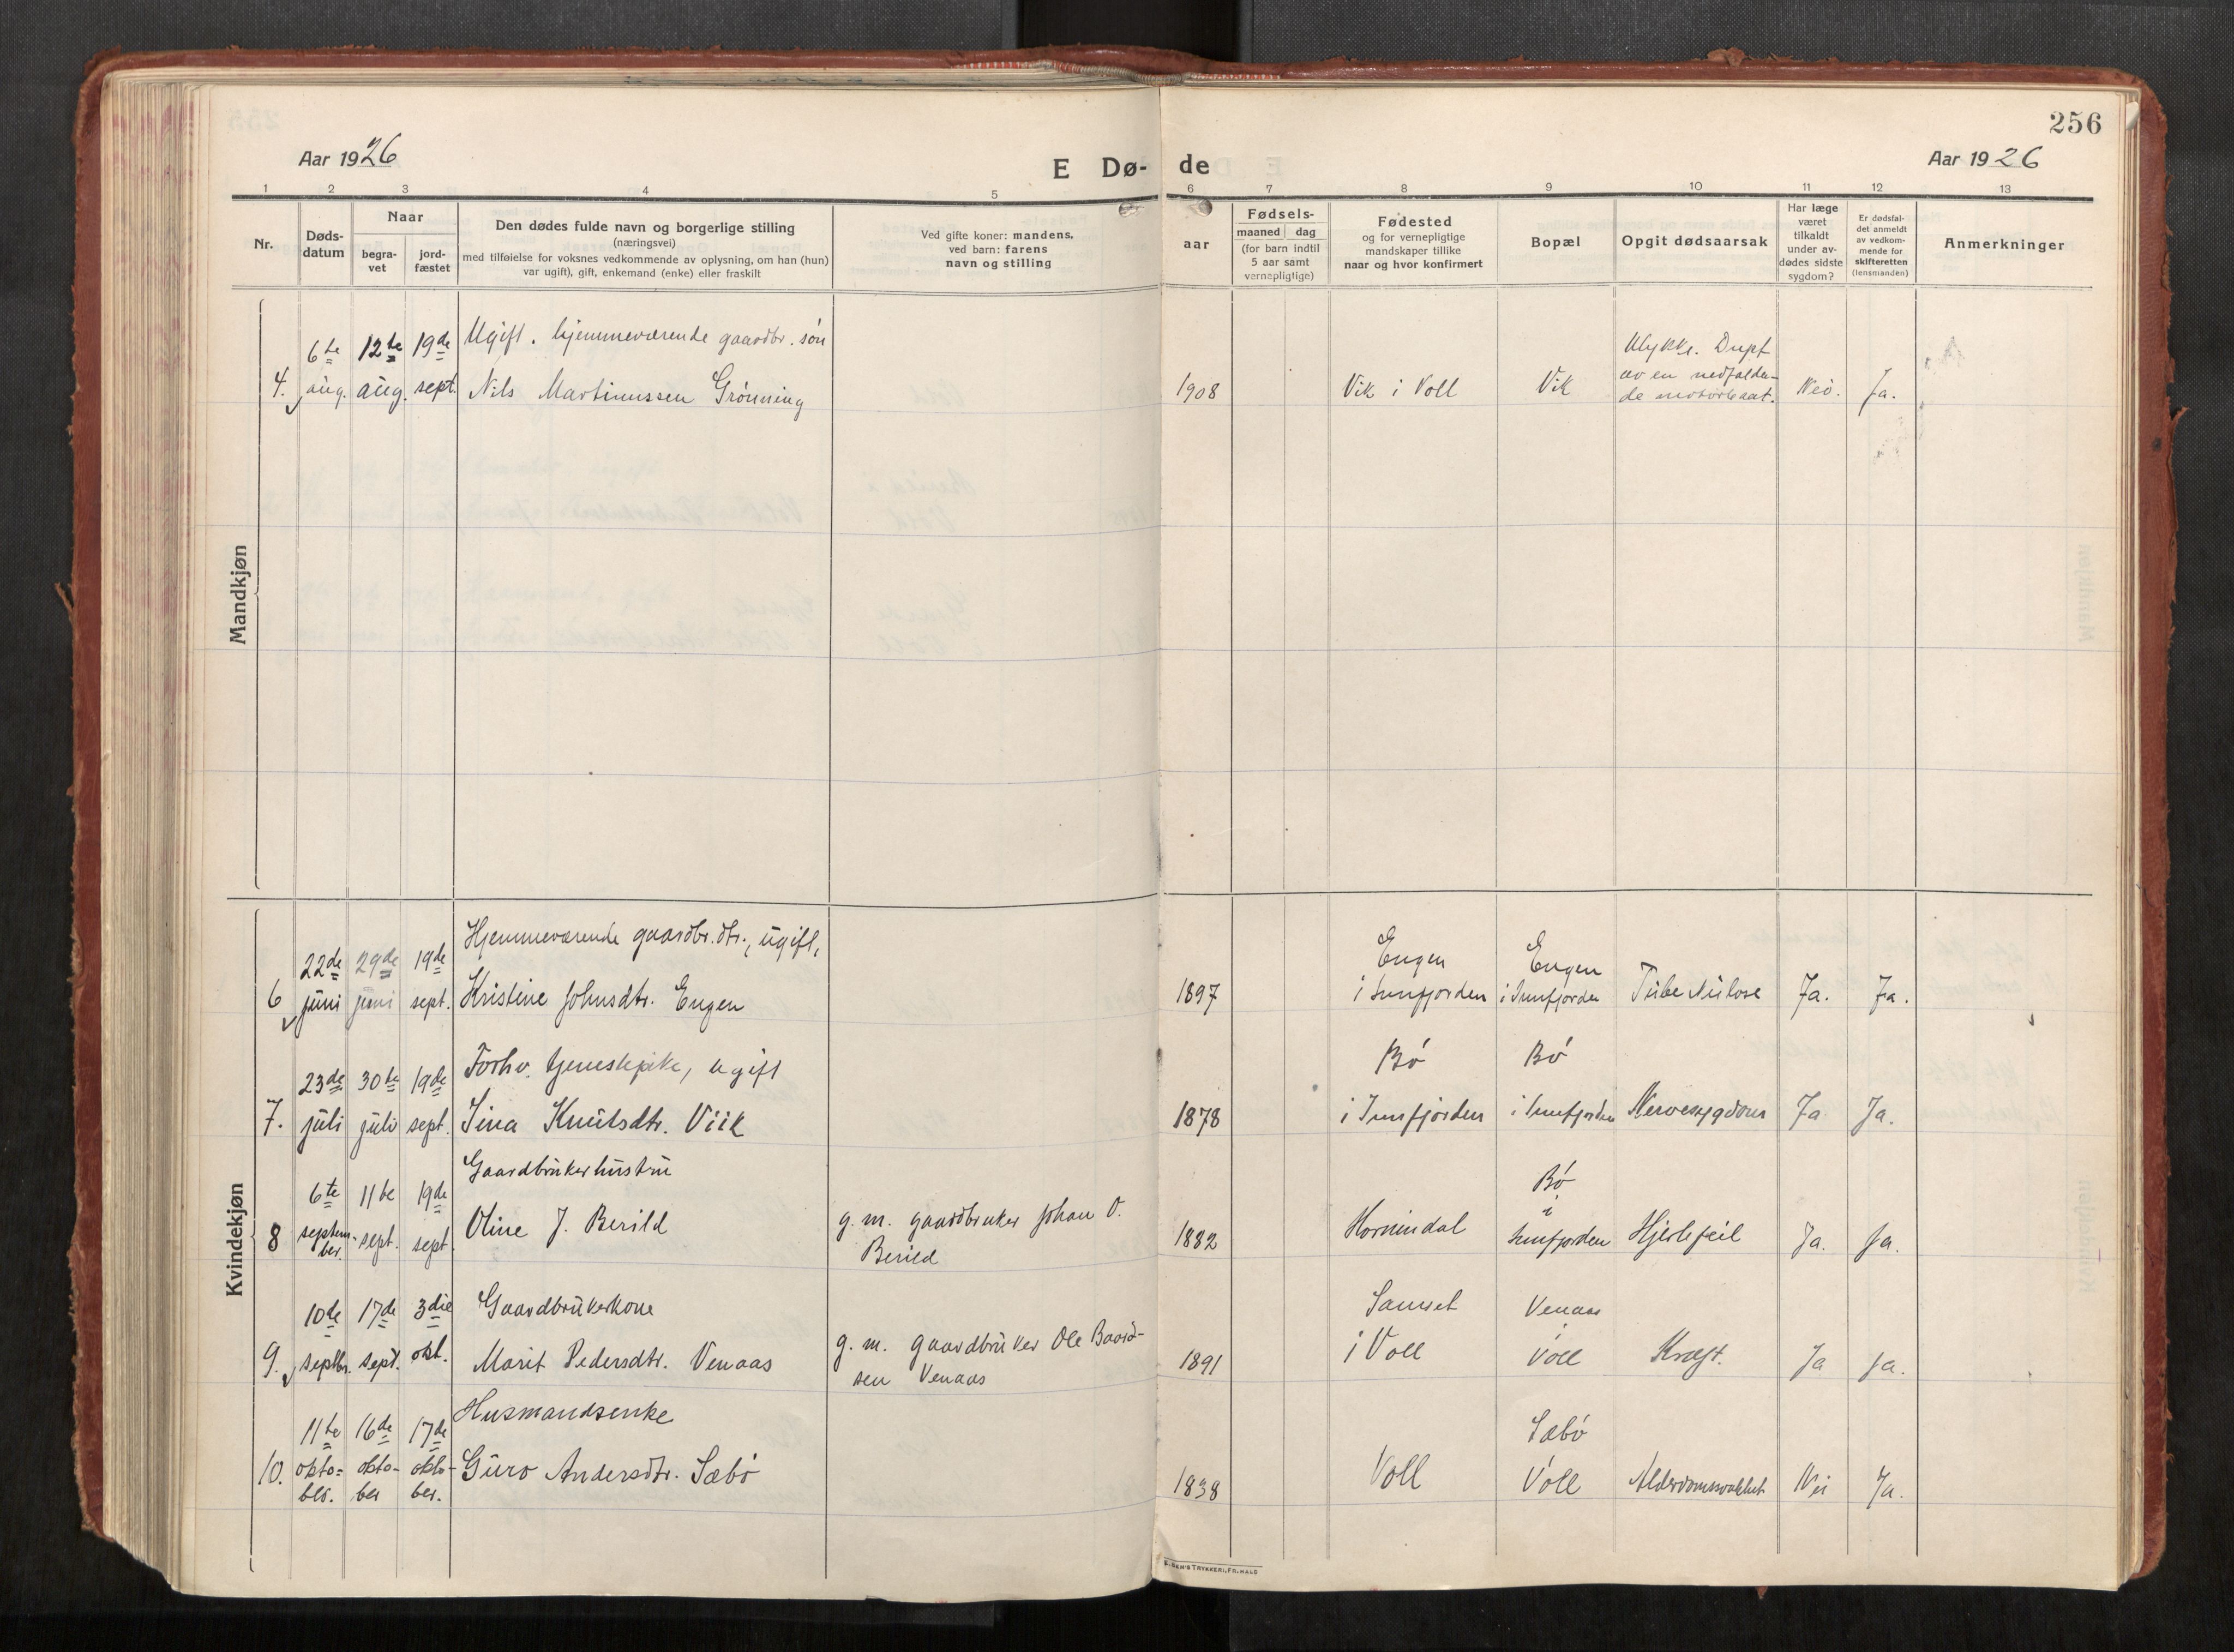 256
Aar 1926
E Dø-de
Aar 1926
1 2 3 4 5 6 7 8 9 10 11 12 13
Nr.
Døds-
datum
Naar
begra-
vet
jord-
fæstet
Den dødes fulde navn og borgerlige stilling
(næringsvei)
med tilføielse for voksnes vedkommende av oplysning, om han (hun)
var ugift), gift, enkemand (enke) eller fraskilt
Ved gifte koner: mandens,
ved barn: farens
navn og stilling
aar
Fødsels-
maaned dag
(for barn indtil
5 aar samt
vernepligtige)
Fødested
og for vernepligtige
mandskaper tillike
naar og hvor konfirmert
Bopæl
Opgit dødsaarsak
Har læge
været
tilkaldt
under av-
dødes sidste
sygdom?
Er dødsfal-
det anmeldt
av vedkom-
mende for
skifteretten
(lensmanden)
Anmerkninger
Mandkjøn
4.
6te
aug.
12te
aug.
19de
sept.
Ugift. hjemmeværende gaardbr. søn
Nils Martinussen Grønning
1908
Vik i Voll
Vik
Ulykke. Dræpt
av en nedfalden-
de motorbaat.
Nei.
Ja.
Kvindekjøn
6
22de
juni
29de
juni
19de
sept.
Hjemmeværende gaardbr. dtr., ugift,
Kristine Johnsdtr. Engen
1897
Engen
i Innfjorden
Engen
i Innfjorden
Tuberkulose
Ja.
Ja.
7.
23de
juli
30te
juli
19de
sept.
Forhv. tjenestepike, ugift
Sina Knutsdtr. Viik
1878
Bø
i Innfjorden
Bø
i Innfjorden
Nervesygdom
Ja
Ja.
8
6te
septem-
ber.
11te
sept.
19de
sept.
Gaardbrukerhustru
Oline J. Berild
g. m. gaardbruker Johan O.
Berild
1882
Hornindal
Bø
i
Innfjorden
Hjertefeil
Ja.
Ja.
9.
10de
septbr.
17de
sept.
3die
okt.
Gaardbrukerkone
Marit Pedersdtr. Venaas
g. m. gaardbruker Ole Baard-
sen Venaas
1891
Samset
i Voll
Venaas
i
Voll
Kræft.
Ja
Ja.
10.
11te
okto-
ber.
16de
okto-
ber
17de
okto-
ber.
Husmandsenke
Guro Andersdtr. Sæbø
1838
Voll
Sæbø
i
Voll
Alderdomssvakhet
Nei
Ja.